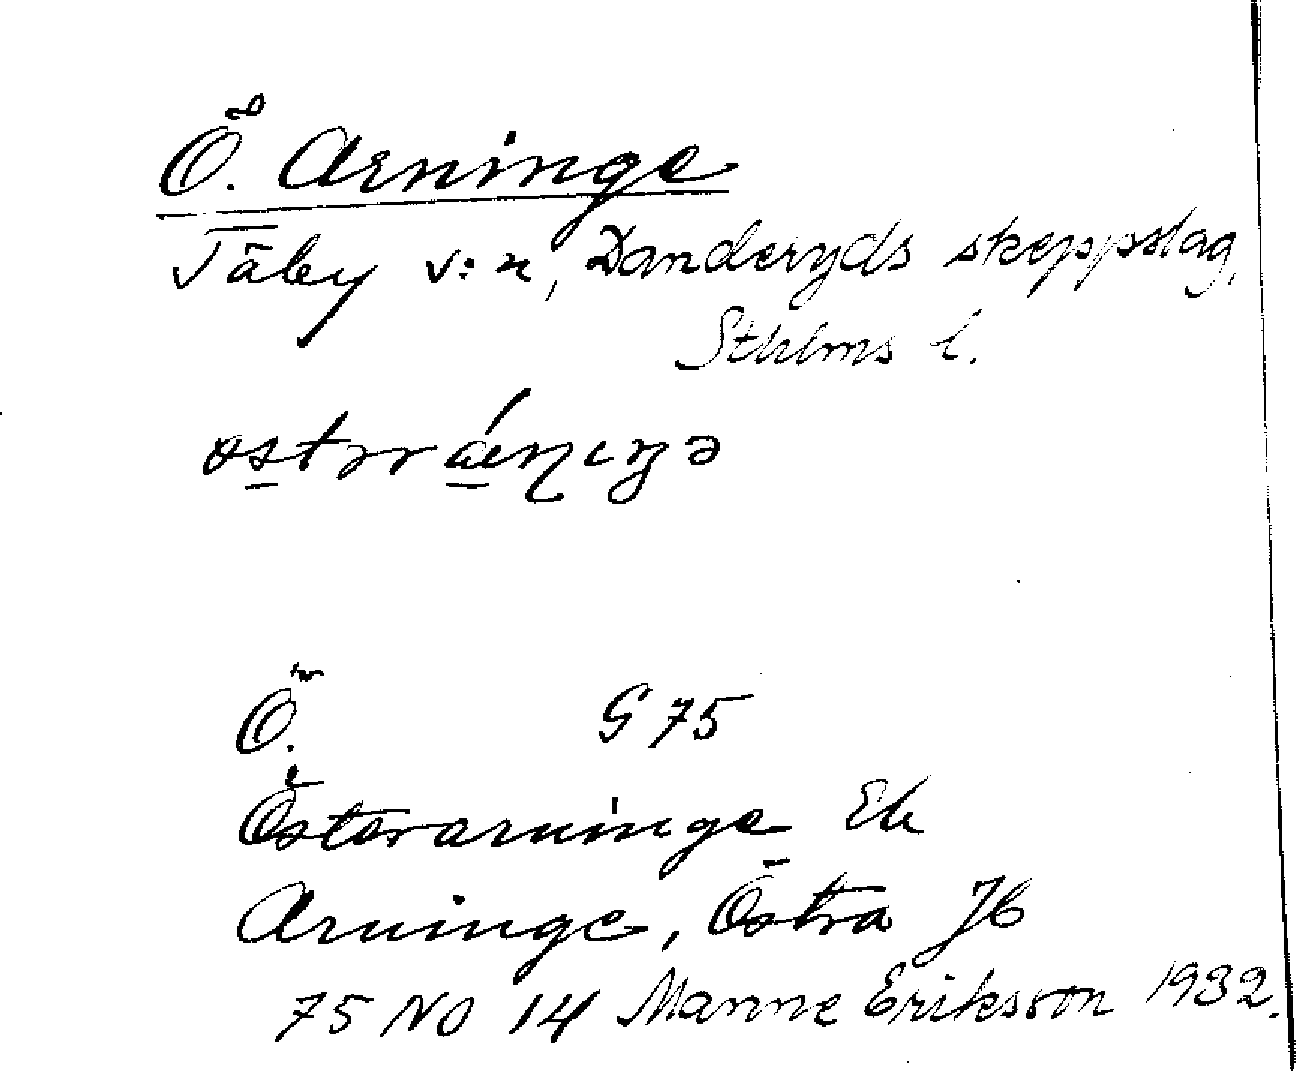 Ö. Arninge
Täby v:n, Danderyds skeppslag,
Sthlms l.
Ö. G 75
Österarninge Ek
Arninge, Östra Jb
75 NO 14 Manne Eriksson 1932.